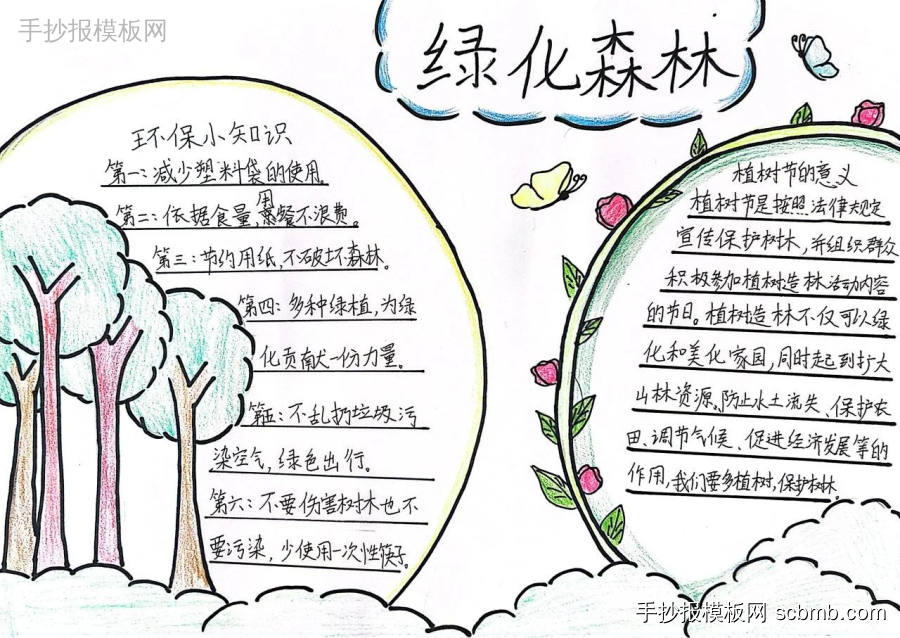 手抄报模板网
绿化森林
环保小知识
第一：减少塑料袋的使用。
第二：依据食量用餐不浪费。
第三：节约用纸，不破坏森林。
第四：多种绿植，为绿
化贡献一份力量。
第五：不乱扔垃圾污
染空气，绿色出行。
第六：不要伤害树木也不
要污染，少使用一次性筷子。
植树节的意义
植树节是按照法律规定
宣传保护树木，并组织群众
积极参加植树造林活动内容
的节日。植树造林不仅可以绿
化和美化家园，同时起到扩大
山林资源。防止水土流失、保护农
田、调节气候、促进经济发展等的
作用，我们要多植树，保护树林。
手抄报模板网 scbmb.com